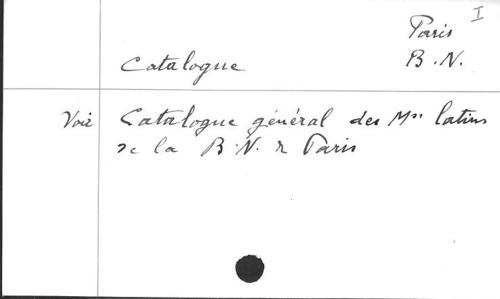 I
Paris
Catalogue B.N.
Voir Catalogue général des Mss latins
de la B.N. de Paris